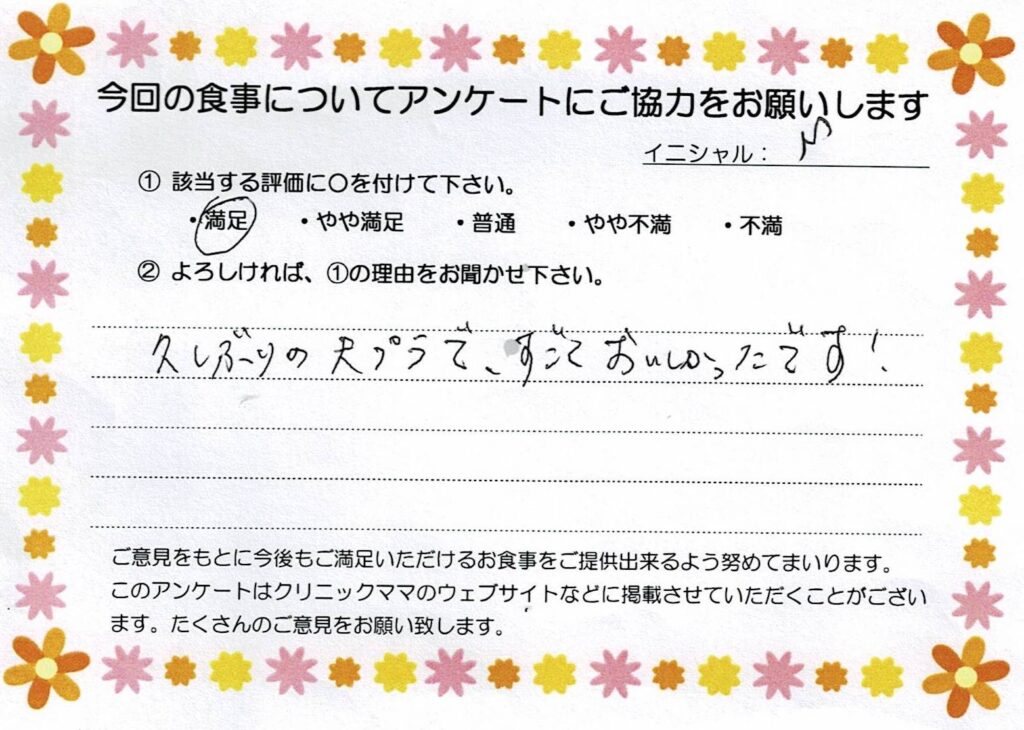 今回の食事についてアンケートにご協力をお願いします
イニシャル： M
① 該当する評価に〇を付けて下さい。
・満足 ・やや満足 ・普通 ・やや不満 ・不満
② よろしければ、①の理由をお聞かせ下さい。
久しぶりの天プラで、すごくおいしかったです！
ご意見をもとに今後もご満足いただけるお食事をご提供出来るよう努めてまいります。
このアンケートはクリニックママのウェブサイトなどに掲載させていただくことがござい
ます。たくさんのご意見をお願い致します。